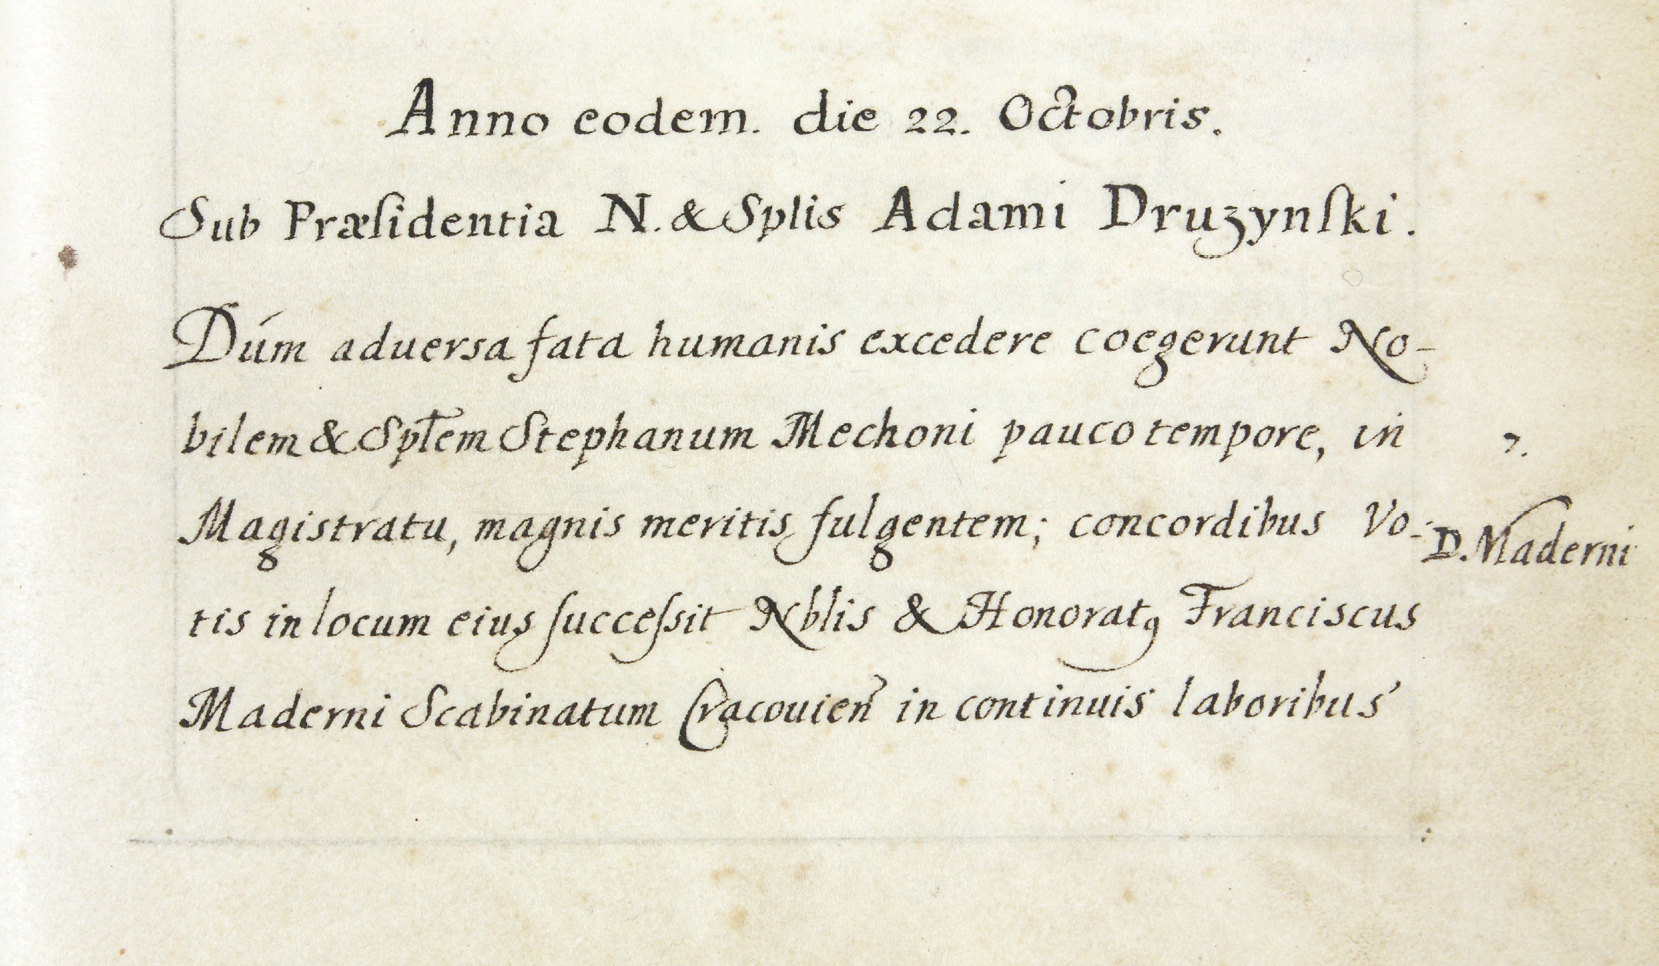 Anno eodem. die 22. Octobris.
Sub Præſidentia N. & Splis Adami Druzynſki.
Dúm aduersa fata humanis excedere coegerunt No-
bilem & Spłem Stephanum Mechoni pauco tempore, in
7.
Magistratu, magnis meritis fulgentem; concordibus Vo-
D. Maderni
tis in locum eius ſucceſsit Nblis & Honoratꝯ Franciscus
Maderni Scabinatum Cracovień in continuis laboribus